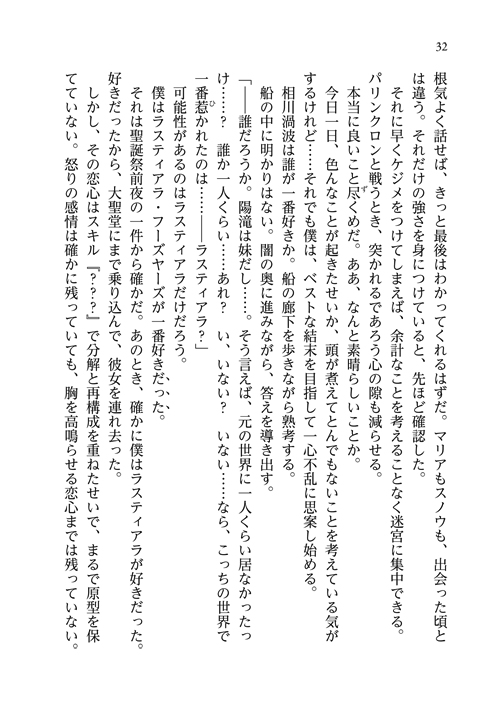 32
根気よく話せば、きっと最後はわかってくれるはずだ。マリアもスノウも、出会った頃と
は違う。それだけの強さを身につけていると、先ほど確認した。
それに早くケジメをつけてしまえば、余計なことを考えることなく迷宮に集中できる。
パリンクロンと戦うとき、突かれるであろう心の隙も減らせる。
本当に良いこと尽くめだ。ああ、なんと素晴らしいことか。
今日一日、色んなことが起きたせいか、頭が煮えてとんでもないことを考えている気が
するけれど……それでも僕は、ベストな結末を目指して一心不乱に思案し始める。
相川渦波は誰が一番好きか。船の廊下を歩きながら熟考する。
船の中に明かりはない。闇の奥に進みながら、答えを導き出す。
「――誰だろうか。陽滝は妹だし……。そう言えば、元の世界に一人くらい居なかったっ
け……？　誰か一人くらい……あれ？　い、いない？　いない……なら、こっちの世界で
一番惹かれたのは………――ラスティアラ？」
可能性があるのはラスティアラだけだろう。
僕はラスティアラ・フーズヤーズが一番好きだった。
それは聖誕祭前夜の一件から確かだ。あのとき、確かに僕はラスティアラが好きだった。
好きだったから、大聖堂にまで乗り込んで、彼女を連れ去った。
しかし、その恋心はスキル『？？？』で分解と再構成を重ねたせいで、まるで原型を保
てていない。怒りの感情は確かに残っていても、胸を高鳴らせる恋心までは残っていない。